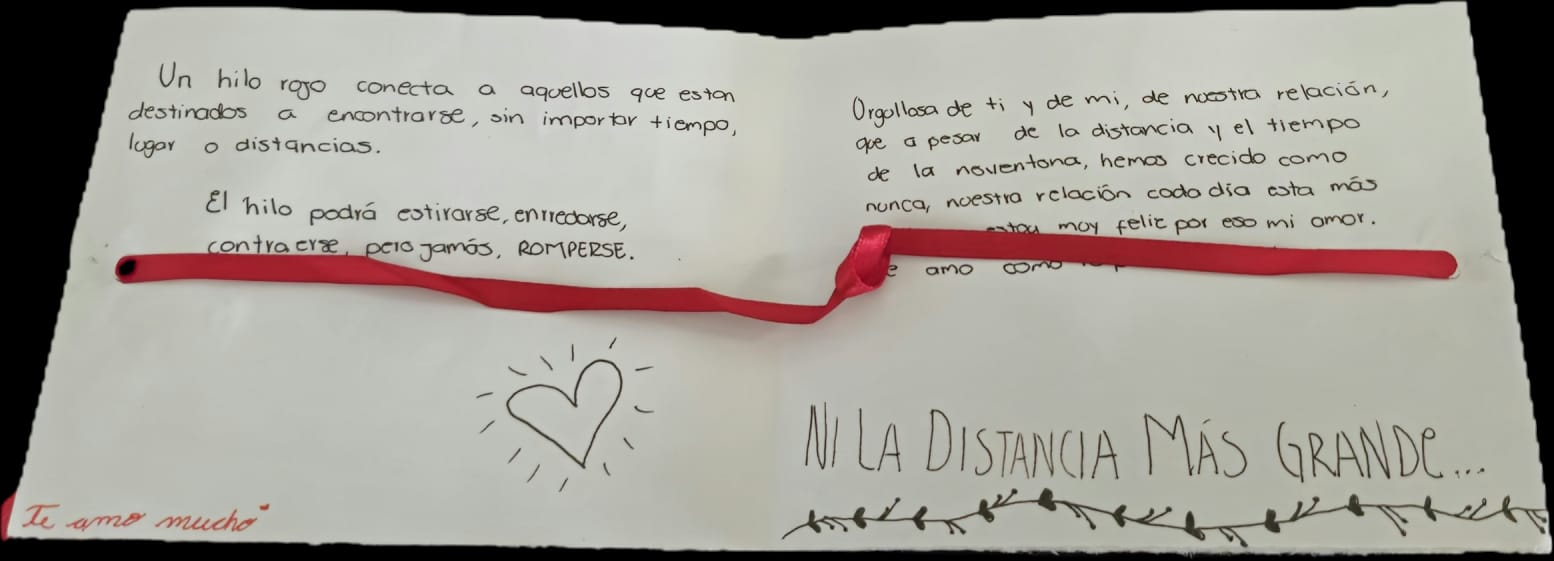 Un hilo rojo conecta a aquellos que estan
destinados a encontrarse, sin importar tiempo,
lugar o distancias.
El hilo podrá estirarse, enrredarse,
contraerse, pero jamás, ROMPERSE.
Te amo mucho
Orgullosa de ti y de mi, de nuestra relación,
que a pesar de la distancia y el tiempo
de la noventona, hemos crecido como
nunca, nuestra relación cada día esta más
estoy muy feliz por eso mi amor.
amo como
NI LA DISTANCIA MÁS GRANDE...